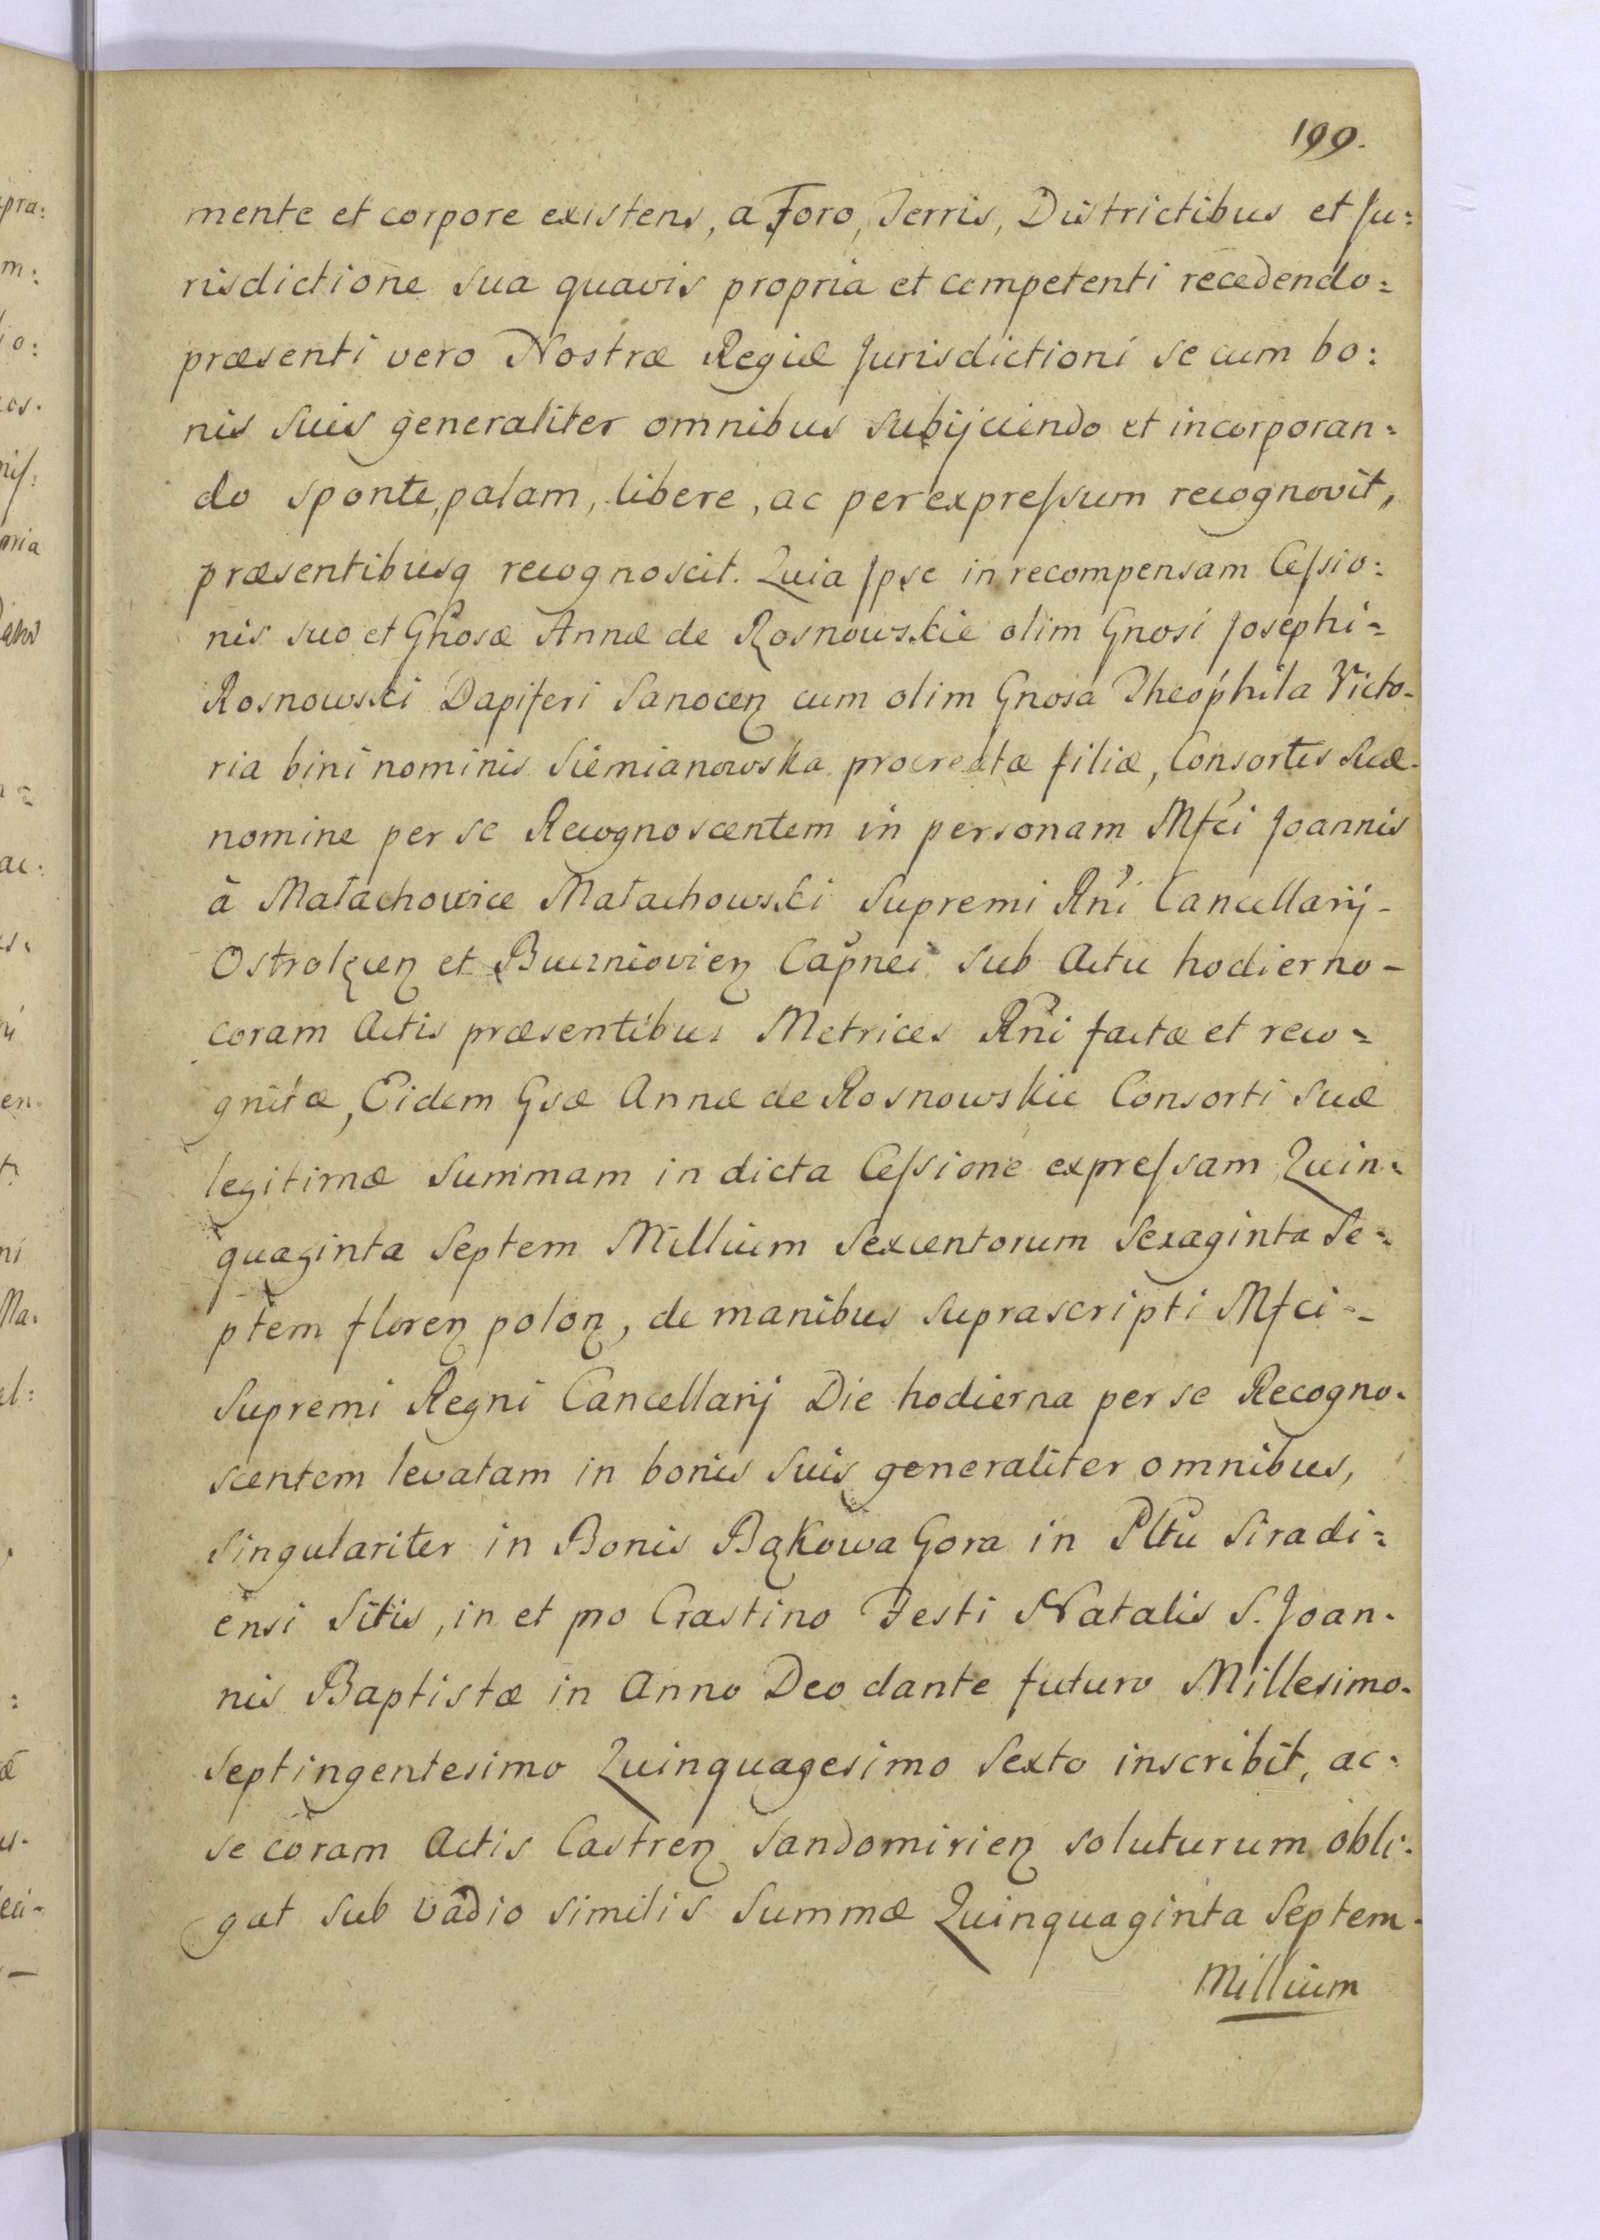 199.
mente et corpore existens, a Foro, Terris, Districtibus et Ju:
risdictione sua quavis propria et competenti recedendo:
præsenti vero Nostræ Regiæ Jurisdictioni se cum bo:
nis suis generaliter omnibus subijciendo et incorporan:
do sponte, palam, libere, ac per expreſsum recognovit,
præsentibusq recognoscit. Quia Ipse in recompensam Ceſsio:
nis suo et Gnosæ Annæ de Rosnowskie olim Gnosi Josephi =
Rosnowski Dapiferi Sanocen cum olim Gnosa Theophila Victo-
ria bini nominis Siemianowska procreatæ filiæ, Consortis Suæ-
nomine per se Recognoscentem in personam Mfci Joannis
à Małachowice Małachowski Supremi Rni Cancellarij -
Ostrolęcen et Buczniovien Capnei sub Actu hodierno -
coram Actis præsentibus Metrices Rni factæ et reco =
gnitæ, Eidem Gsæ Annæ de Rosnowskie Consorti Suæ
legitimæ Summam in dicta Ceſsione expreſsam Quin =
quaginta Septem Millium Sexcentorum Sexaginta Se =
ptem floren polon, de manibus suprascripti Mfci -
Supremi Regni Cancellarij Die hodierna per se Recogno-
scentem levatam in bonis Suis generaliter omnibus,
singulariter in Bonis Bąkowa Gora in Pltu Siradi =
ensi Sitis, in et pro Crastino Festi Natalis S. Joan-
nis Baptistæ in Anno Deo dante futuro Millesimo-
Septingentesimo Quinquagesimo Sexto inscribit, ac =
se coram Actis Castren Sandomirien soluturum obli-
gat sub vadio similis Summæ Quinquaginta Septem-
Millium